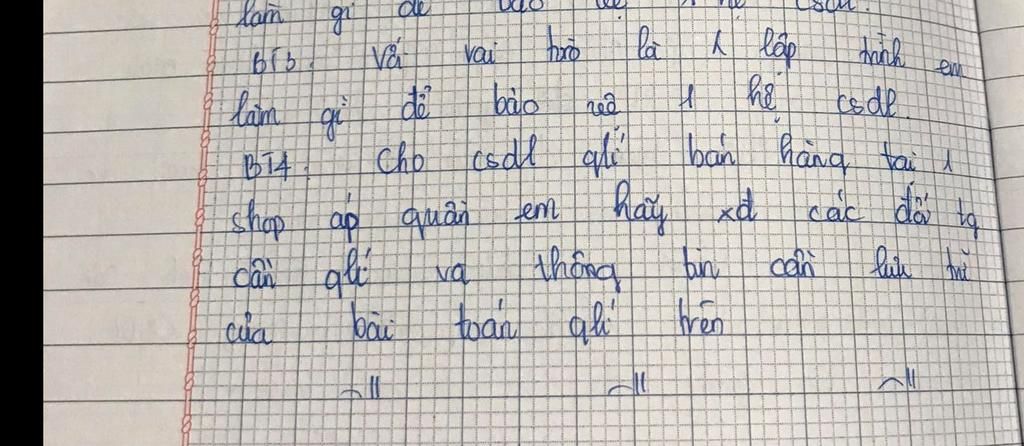 làm gì để bảo
BT3. Vả vai trò là 1 lập trình em
làm gì để bảo mâ 1 hệ csdl.
BT4. Cho csdl qlí bán hàng tại 1
shop áp quần em hãy xđ các đối tg
cần qlí và thông tin cần lưu trữ
của bài toán qlí trên